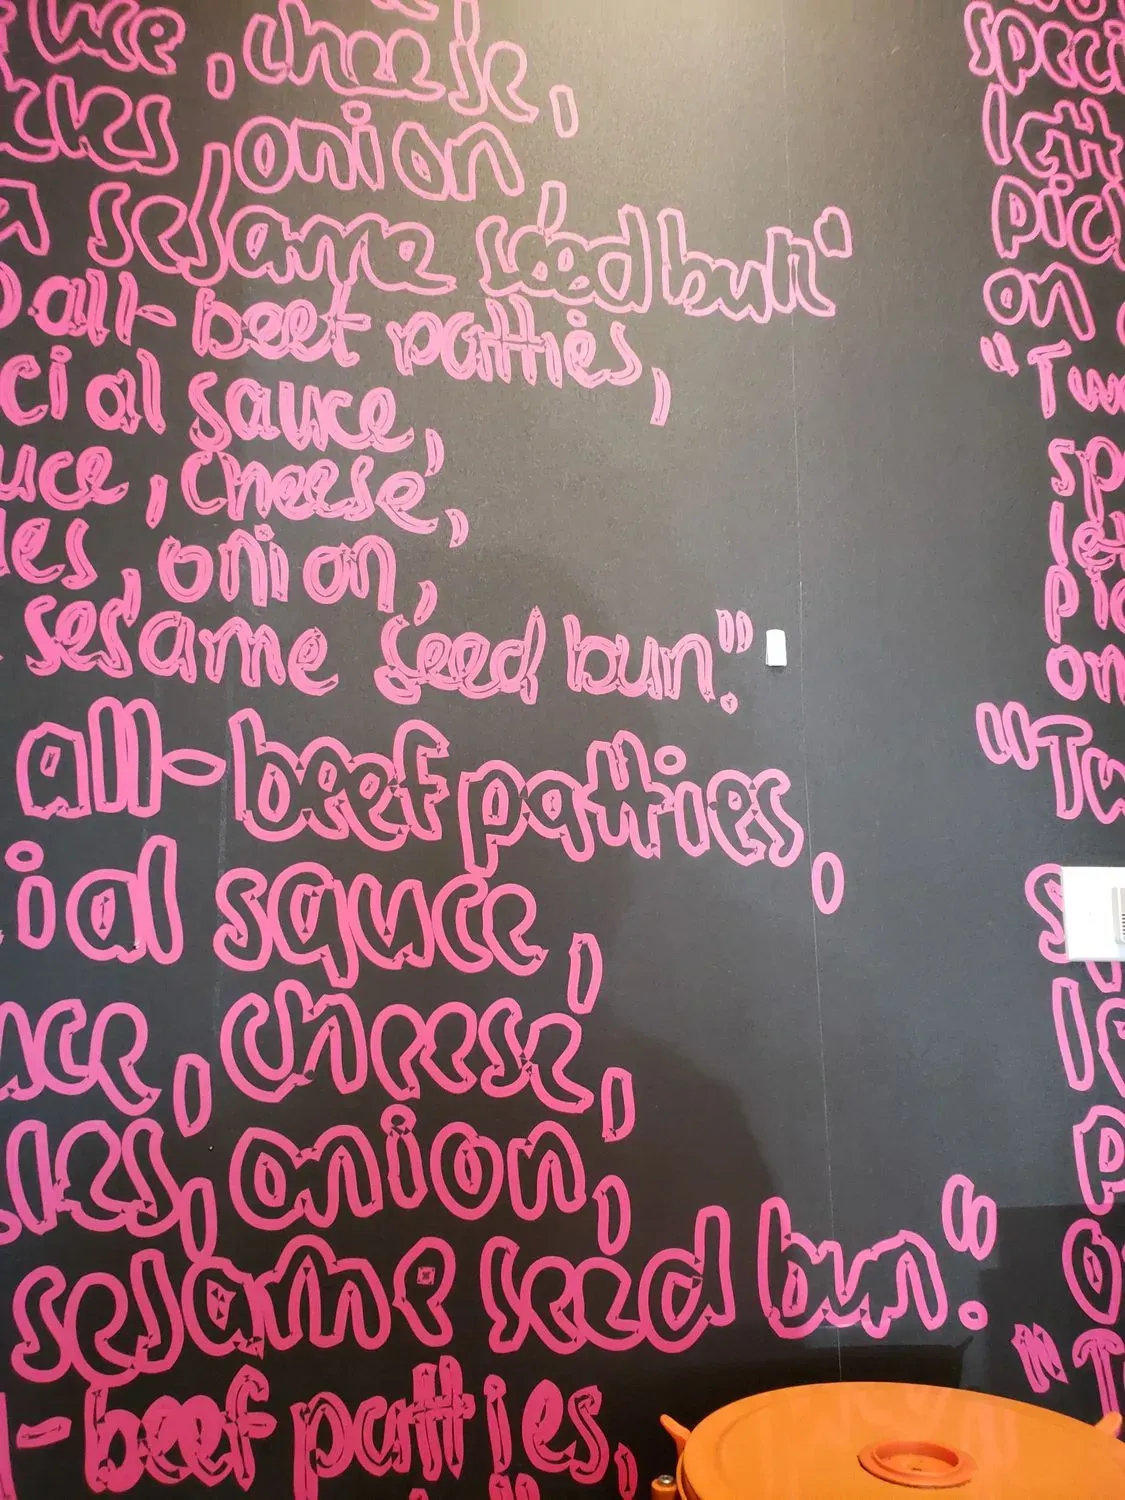 , cheese,
onion,
sesame seed bun"
all-beef patties,
cial sauce,
uce, cheese,
les, onion,
sesame seed bun."
all-beef patties,
ial sauce,
uce, cheese,
les, onion,
sesame seed bun."
-beef patties,
speci
lett
pic
on
"Two
sp
le
pic
on
"Tw
s
le
p
o
"T